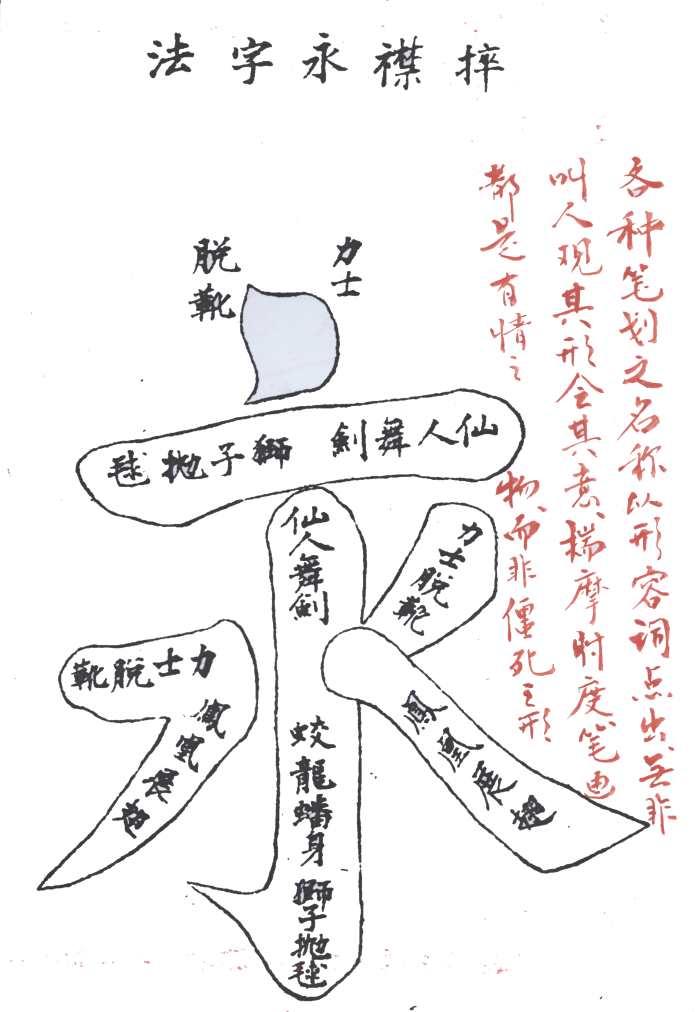 捽襟永字法
各种笔划之名称以形容词点出、无非
叫人观其形会其意、揣摩忖度笔画
都是有情之物、而非僵死之形
力士
脱靴
仙人舞劍 獅子抛毬
仙人舞劍
蛟龍蟠身
獅子抛毬
力士脱靴
力士脱靴
鳳凰展翅
鳳凰展翅